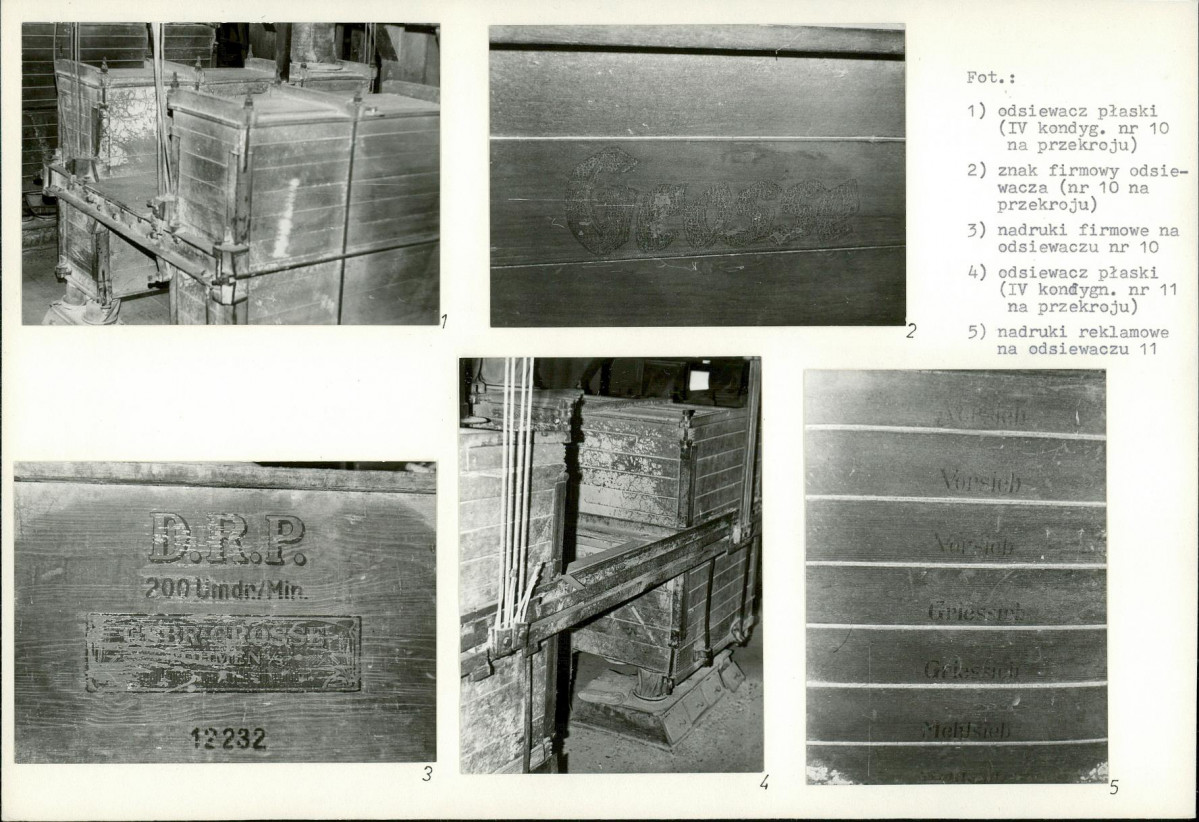 Fot.:
1) odsiewacz płaski
(IV kondyg. nr 10
na przekroju)
2) znak firmowy odsie-
wacza (nr 10 na
przekroju)
3) nadruki firmowe na
odsiewaczu nr 10
4) odsiewacz płaski
(IV kondygn. nr 11
na przekroju)
5) nadruki reklamowe
na odsiewaczu 11
1
Grosse
2
D.R.P.
200 Umdr/Min.
GEBR. GROSSE
12232
3
4
Vorsieb
Vorsieb
Vorsieb
Griessieb
Griessieb
Mehlsieb
5